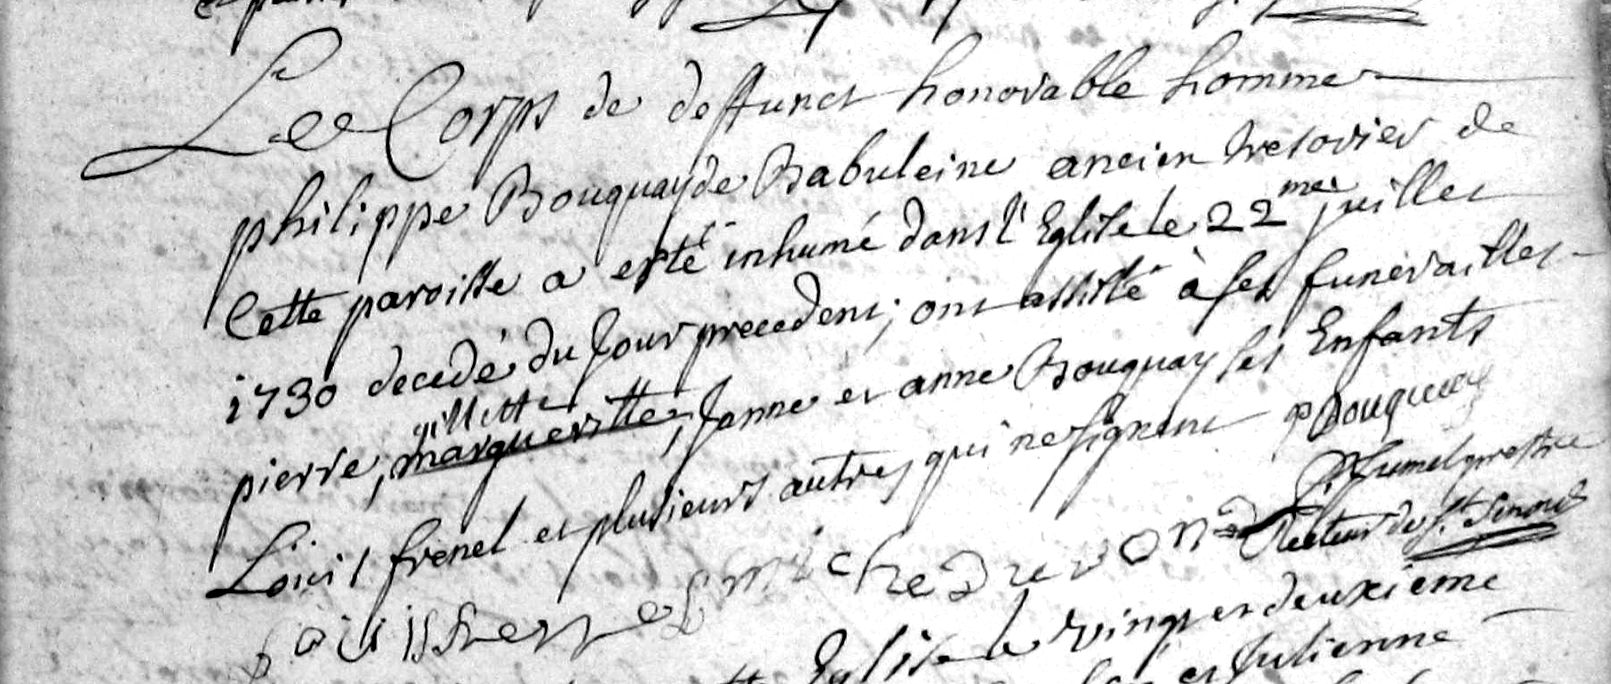 Lee Corps de deffunct honorable homme
philippe Bouquay de Babuleine ancien tresorier de
Cette paroisse a esté inhumé dans l'Eglise le 22me juillet
1730 decedé du Jour precedent; ont assisté à ses funerailles
pierre, gillette margueritte, Janne et anne Bouquay ses Enfants
Loüis frenel et plusieurs autres qui ne signent p Bouquay
Loüis frenel michel
prestre
Recteur de St Senoux
Eglise le vingt et deuxieme
et Julienne